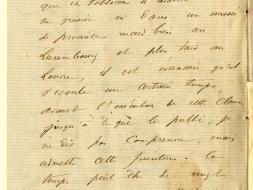 que ce tableau
ne pourra ni dans un musée
de province mais bien au
Luxembourg et plus tard au
Louvre, il est entendu qu'il
s'écoule un certain temps,
avant l'exécution de cette clause
jusqu'à ce que le public, je
ne dis pas comprenne, mais
admette cette peinture. Ce
temps peut être de vingt